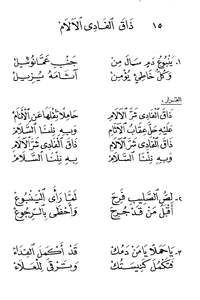 ١٥ ذَاقَ الْفَادِي الْآلَامْ
١. يَنْبُوعُ دَمٍ سَالَ مِنْ جَنْبِ عَمَّانُوئِيلْ
وَكُلُّ خَاطِئٍ يُؤْمِنْ آثَامَهُ يُزِيلْ
القرار:
ذَاقَ الْفَادِي شَرَّ الْآلَامِ حَامِلًا ثِقْلَهَا عَنِ الْأَنَامْ
عَلَيْهِ حَلَّ عِقَابُ الْآثَامِ وَبِهِ نِلْنَا السَّلَامْ
ذَاقَ الْفَادِي شَرَّ الْآلَامِ وَبِهِ نِلْنَا السَّلَامْ
وَبِهِ نِلْنَا السَّلَامْ وَبِهِ نِلْنَا السَّلَامْ
٢. لِصُّ الصَّلِيبِ فَرِحَ لَمَّا رَأَى الْيَنْبُوعْ
أَقْبَلَ مَنْ قَدْ جُرِحَ وَأَحْظَى بِالرُّجُوعْ
٣. يَا حَمَلًا مِنْ دَمِكْ قَدْ أُكْمِلَ الْفِدَاءْ
فَتَكْمُلُ كَنِيسَتُكْ وَتَرْقَى لِلْعَلَاءْ